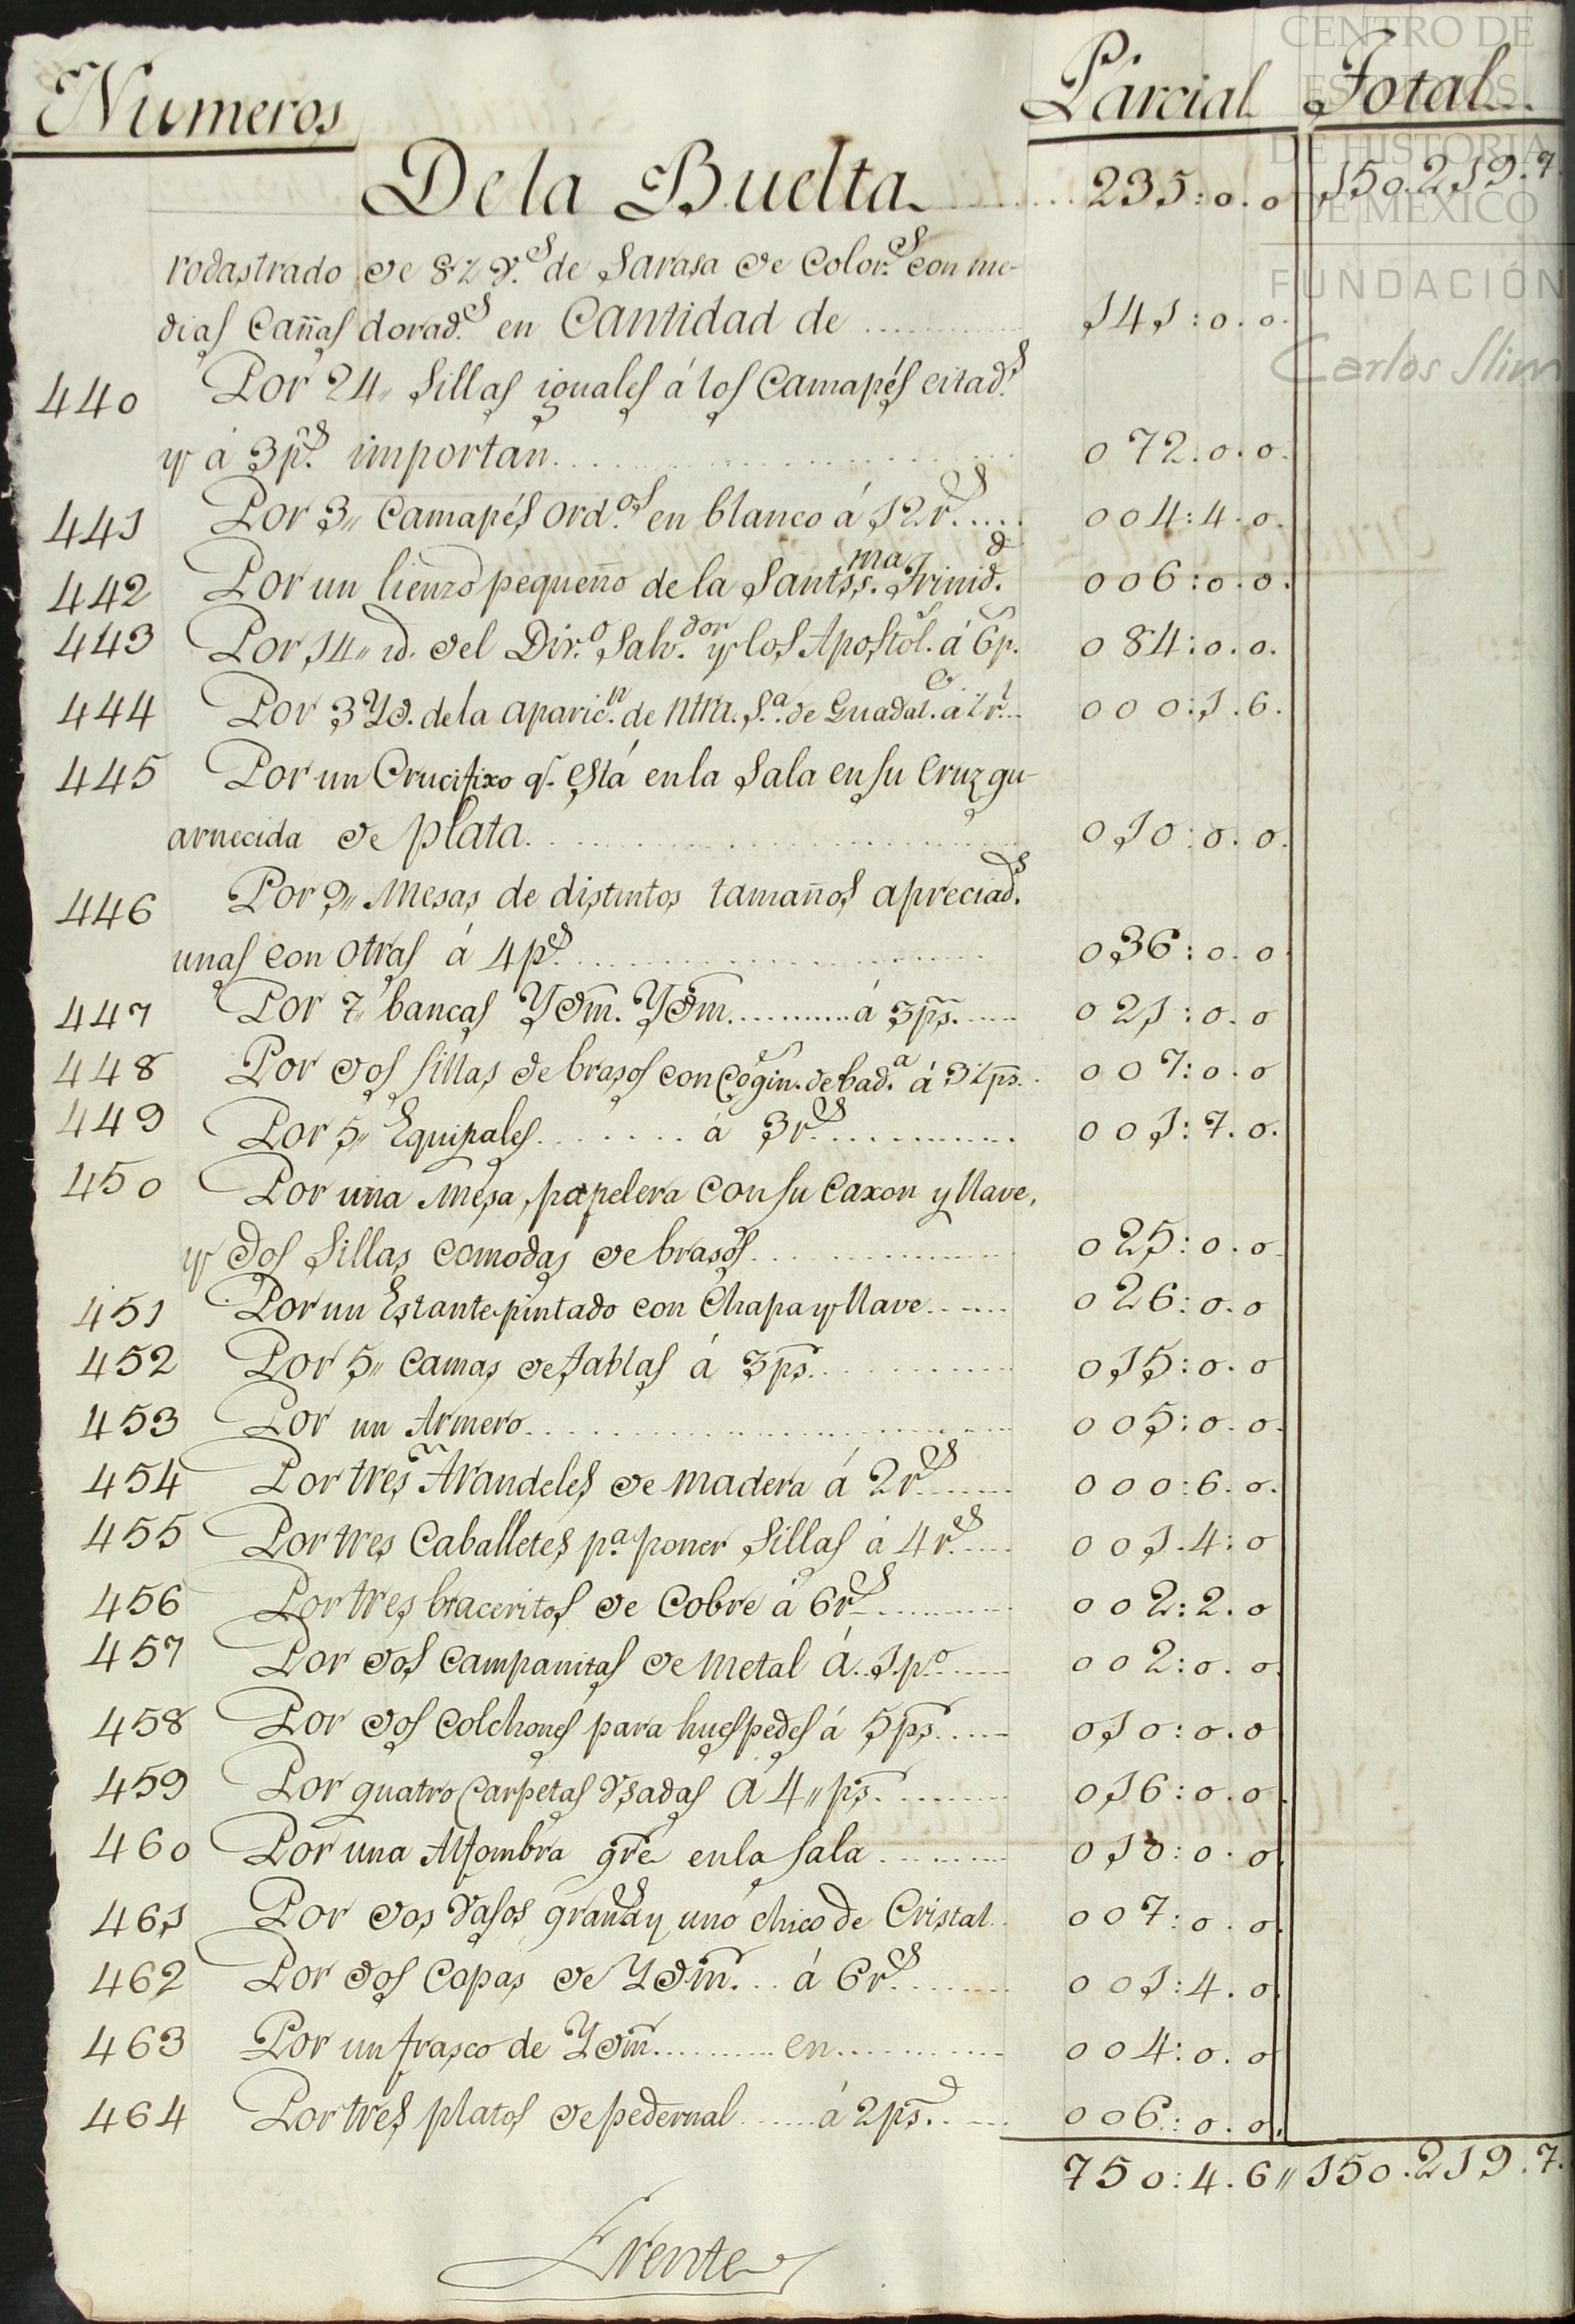 Numeros Parcial Total
De la Buelta 235:0.0 150.219.7
rodastrado de 82 v.s de Sarasa de Color.s con me-
dias Cañas dorad.s en Cantidad de 141:0.0.
440 Por 24,, Sillas iguales á los Camapés citad.s
y á 3 p.s importan 072.0.0.
441 Por 3,, Camapés ord.os en blanco á 12 r.s 004:4.0.
442 Por un lienzo pequeño de la Santss.ma Trinid.d 006:0.0.
443 Por 14,, id. del Div.o Salv.dor y los Apostol.s á 6 p.s 084:0.0.
444 Por 3 Yd. de la aparic.n de Ntra. S.a de Guadal.e á ½ r.l 000:1.6.
445 Por un Crucifixo q.e está en la Sala en su Cruz gu-
arnecida de plata 010:0.0.
446 Por 9,, Mesas de distintos tamaños apreciad.s
unas con otras á 4 p.s 036:0.0.
447 Por 7,, bancas Ydm. Ydm. á 3 ps. 021:0.0
448 Por dos sillas de brasos con Cogin.es de bad.a á 3½ ps. 007:0.0
449 Por 5,, Equipales á 3 r.s 001:7.0.
450 Por una Mesa, papelera con su Caxon y llave,
y dos Sillas comodas de brasos 025:0.0
451 Por un Estante pintado con Chapa y llave 026:0.0
452 Por 5,, Camas de tablas á 3 ps. 015:0.0
453 Por un Armero 005:0.0.
454 Por tres Arandeles de madera á 2 r.s 000:6.0.
455 Por tres Caballetes p.a poner Sillas á 4 r.s 001.4:0
456 Por tres braceritos de Cobre á 6 r.s 002:2.0
457 Por dos Campanitas de metal á 1 p.o 002:0.0.
458 Por dos Colchones para huespedes á 5 ps. 010:0.0
459 Por quatro Carpetas Vsadas á 4,, ps. 016:0.0.
460 Por una Alfombra gre en la Sala 010:0.0.
461 Por dos Vasos grand.s y uno chico de Cristal 007:0.0.
462 Por dos Copas de Ydm. á 6 r.s 001:4.0.
463 Por un frasco de Ydm. en 004:0.0
464 Por tres platos de pedernal á 2 ps. 006:0.0.
750:4.6,, 150.219.7.
Frente
CENTRO DE
ESTUDIOS
DE HISTORIA
DE MEXICO
FUNDACIÓN
Carlos Slim